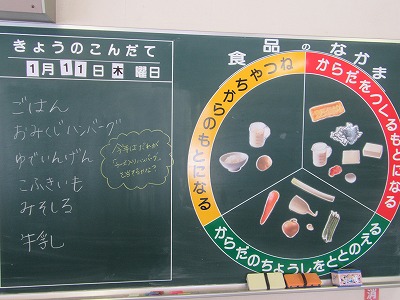 きょうのこんだて
1月11日木曜日
ごはん
おみくじハンバーグ
ゆでいんげん
こふきいも
みそしる
牛乳
今年はだれが
を当てるかな？
食品のなかま
ちからやねつのもとになる
からだをつくるもとになる
からだのちょうしをととのえる
消